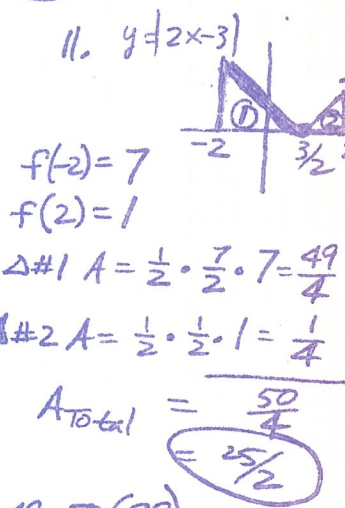 11. y=|2x-3|
① ②
-2 3/2
f(-2)=7
f(2)=1
△#1 A = 1/2 · 7/2 · 7 = 49/4
#2 A = 1/2 · 1/2 · 1 = 1/4
A Total = 50/4
= 25/2